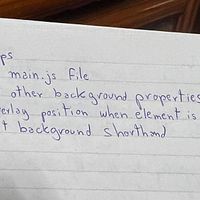 ps
main.js file
other background properties
erlay position when element is
t background shorthand